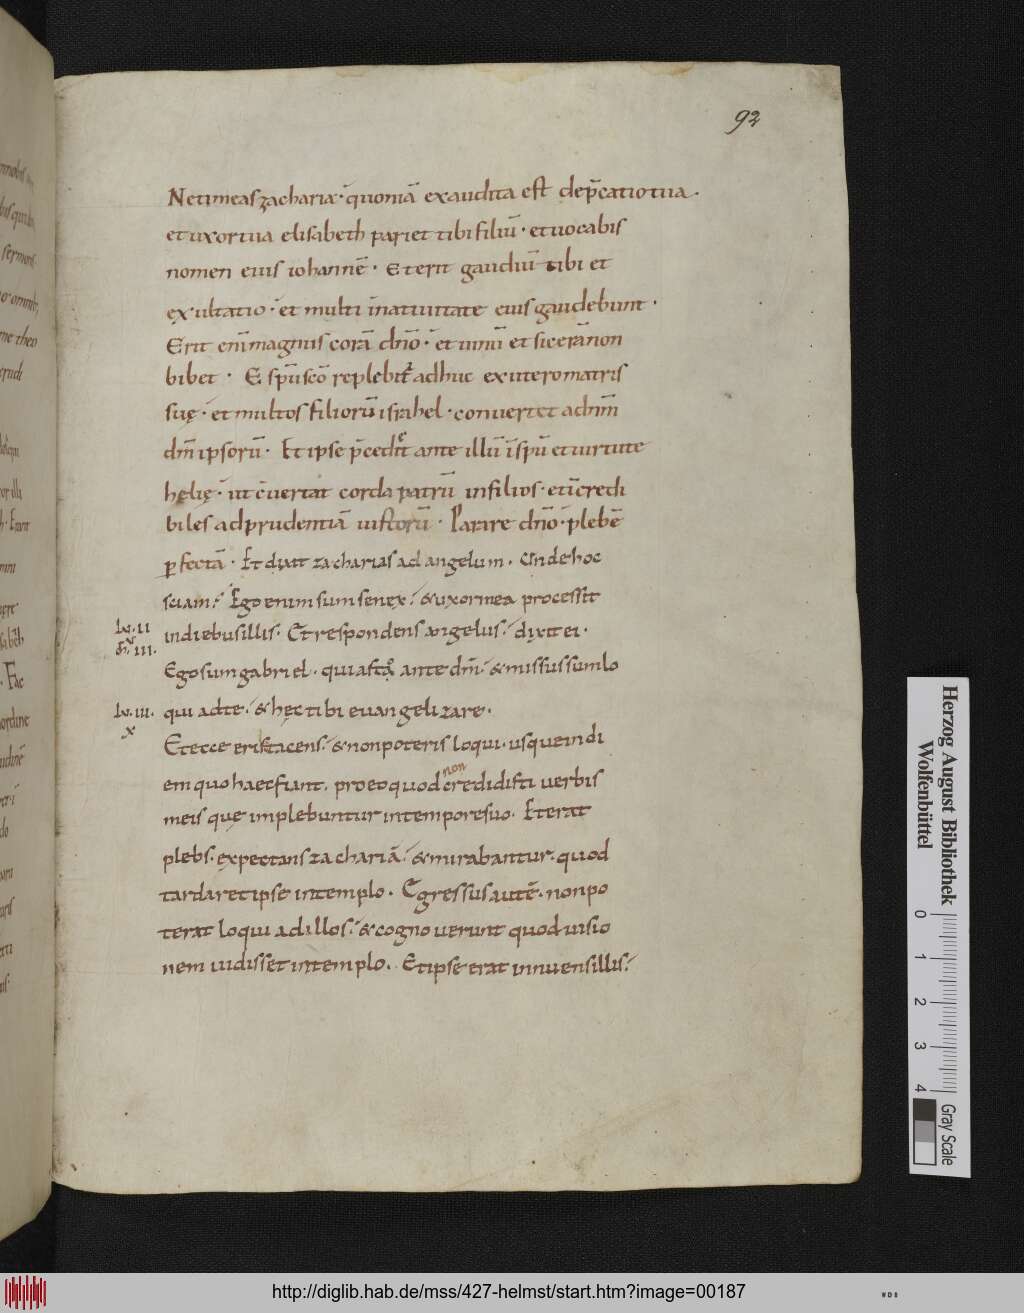 92
Netimeas zacharia· quoniā exaudita est dep̄catio tua.
et uxor tua elisabeth pariet tibi filiū· et uocabis
nomen eius iohannē· Et erit gaudiū tibi et
exultatio· et multi in natiuitate eius gaudebunt·
Erit enī magnus corā dn̄o· et uinū et sicerā non
bibet· E sp̄u sc̄o replebit᷑ adhuc ex utero matris
suę· et multos filiorū israhel· conuertet ad dn̄m
dm̄ ipsorū· Et ipse p̄cedet ante illū ī sp̄u et uirtute
helię· ut c̄uertat corda patrū in filios· et īcredi
biles ad prudentiā iustorū· Parare dn̄o· plebē
ꝑfectā· Et dixit zacharias ad angelum. Unde hoc
sciam? Ego enim sum senex· & uxor mea processit
Lv. II
M. III.
in diebus illis. Et respondens angelus· dixit ei·
Ego sum gabriel. qui asto ante dm̄· & missus sum lo
Lv. III.
X
qui ad te· & hęc tibi euangelizare.
Et ecce eris tacens· & non poteris loqui. usque in di
em quo haec fiant. pro eo quod non credidisti uerbis
meis que implebuntur in tempore suo. Et erat
plebs. expectans zachariā· & mirabantur. quod
tardaret ipse in templo. Egressus autē. non po
terat loqui ad illos· & cognouerunt quod uisio
nem uidisset in templo. Et ipse erat innuens illis·
Herzog August Bibliothek
Wolfenbüttel
0 1 2 3 4
Gray Scale
http://diglib.hab.de/mss/427-helmst/start.htm?image=00187